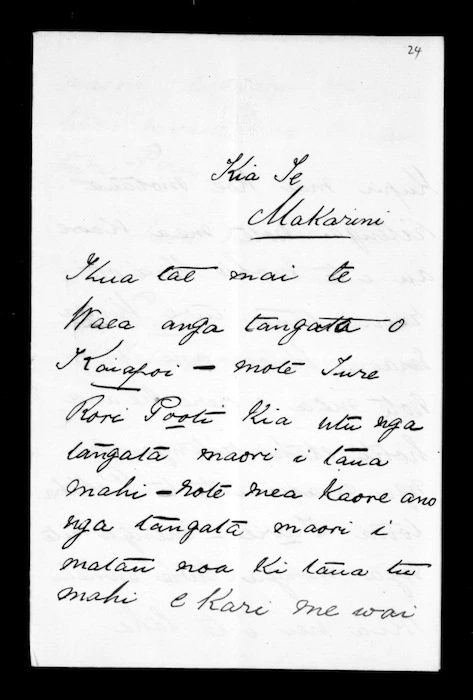 24
Kia Te
Makarini
Kua tae mai te
Waea anga tangata o
Kaiapoi - mote Ture
Rori Pooti Kia utu nga
tangata maori i taua
mahi - note mea Kaore ano
nga tangata maori i
matau noa Ki taua tu
mahi e Kari me wai